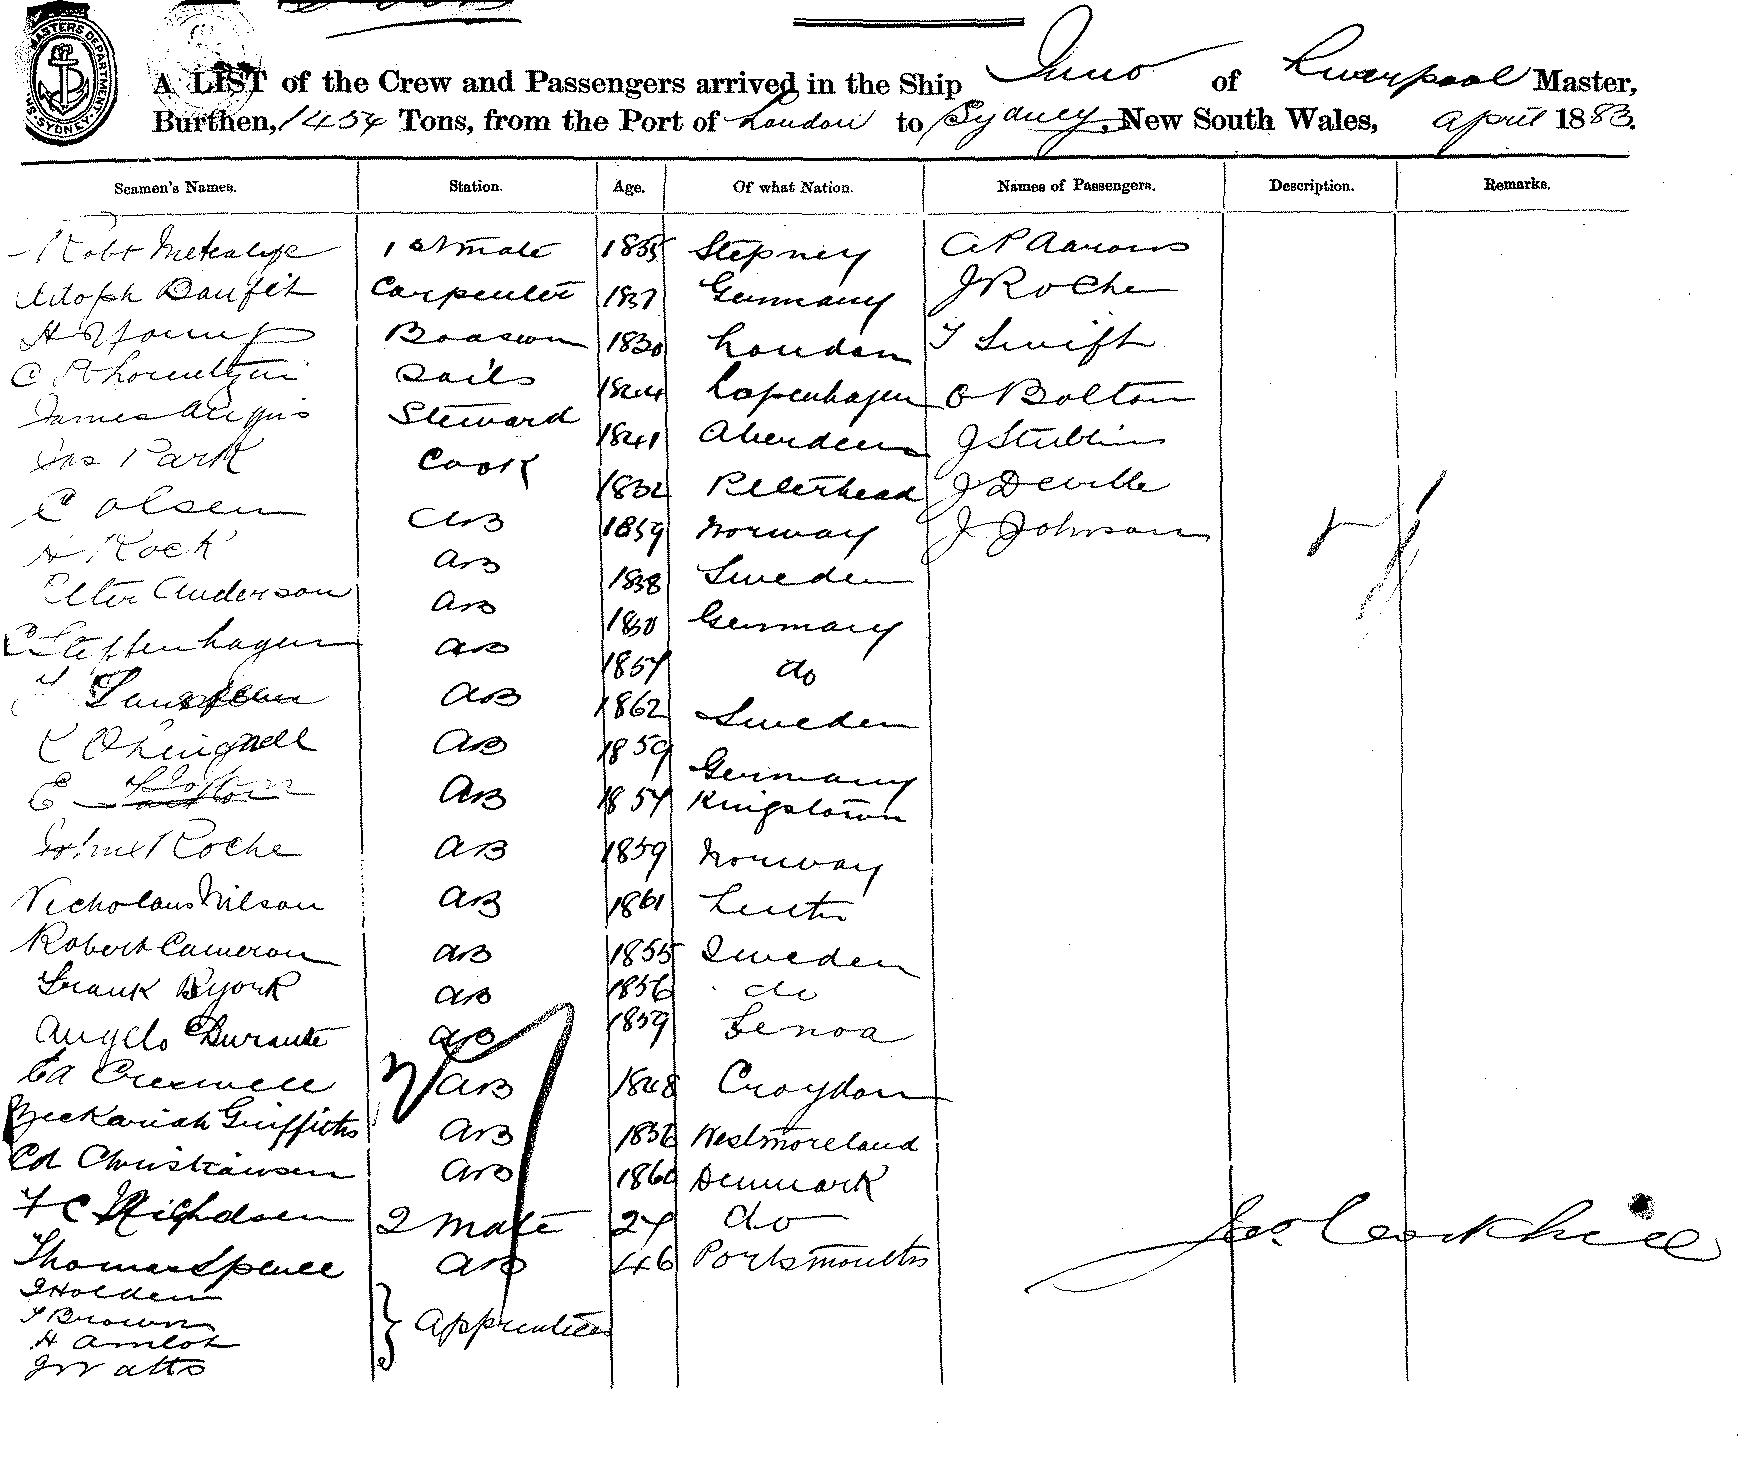 MASTERS DEPARTMENT SYDNEY
A LIST of the Crew and Passengers arrived in the Ship Juno of Liverpool Master,
Burthen, 1454 Tons, from the Port of London to Sydney, New South Wales, April 1883.
Seamen's Names. Station. Age. Of what Nation. Names of Passengers. Description. Remarks.
Robt Metcalfe 1st mate 1855 Stepney A P Aarons
Adolph Carpenter 1837 Germany J Roche
H Young Boasewn 1830 London T Swift
C Sails 1844 Copenhagen C Bolton
James Steward 1841 Aberdeen J Stubbins
Jas Park Cook 1832 Peterhead J Deville
C Olsen AB 1859 Norway J Johnson
A Kock AB 1838 Sweden
Peter Anderson AB Germany
C Steffenhagen AB 1857 do
AB 1862 Sweden
AB 1859 Germany
E AB 1857 Kingstown
Roche AB 1859 Norway
Nicholaus Nilson AB 1861
Robert Cameron AB 1855 Sweden
Frank Byork AB 1856 do
Angelo Durante AB 1859 Genoa
Ed Creswell AB 1848 Croydon
Zeckariah Griffiths AB 1856 Westmoreland
Ed Christiansen AB 1860 Denmark
F C 2 Mate 27 do
Thomas Spence AB 46 Portsmouth
J Holden
T Brown Apprentices
H Amlot
J Watts